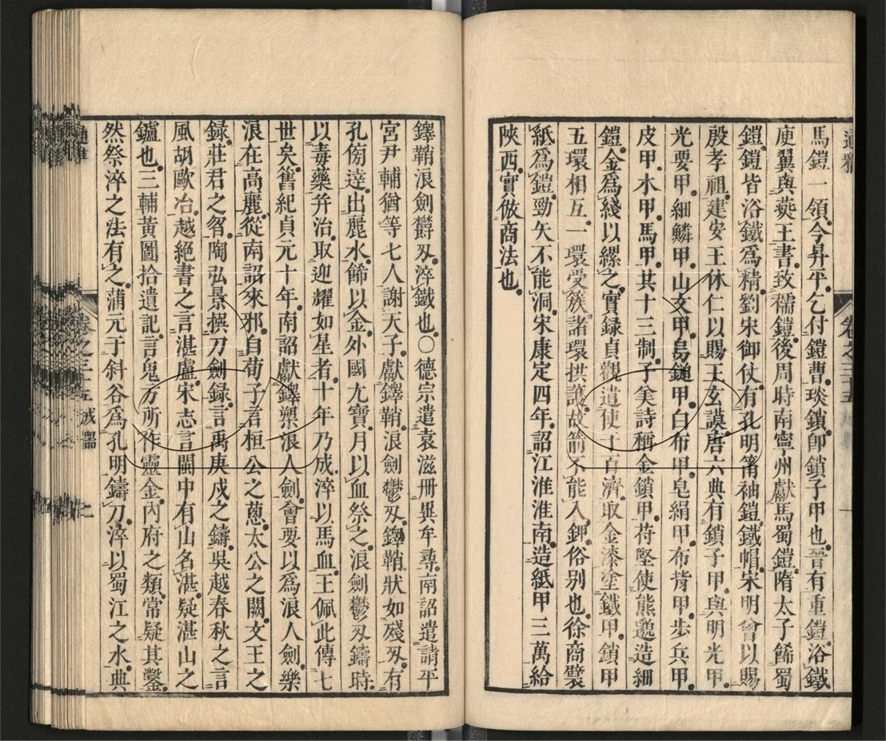 馬鎧一領今昇平乞付鎧曹琰鎖卽鎖子甲也晉有重鎧浴鐵
庾翼與燕王書致𥜗鎧後周時南寧州獻馬蜀鎧隋太子餙蜀
鎧鎧皆浴鐵爲精劉宋御仗有孔明筩袖鎧鐵帽宋明會以賜
殷孝祖建安王休仁以賜王玄謨唐六典有鎖子甲與明光甲
光要甲細鱗甲山文甲烏鎚甲白布甲皂絹甲布背甲步兵甲
皮甲木甲馬甲其十三制子美詩稱金鎖甲苻堅使熊邈造細
鎧金爲綫以縲之實録貞觀遣使于百濟取金漆塗鐵甲鎖甲
五環相互一環受簇諸環拱護故箭不能入鉀俗别也徐商襞
紙爲鎧勁矢不能洞宋康定四年詔江淮淮南造紙甲三萬給
陝西實倣商法也
鐸鞘浪劍欝刄淬鐵也○德宗遣袁滋冊異牟尋南詔遣請平
宮尹輔猶等七人謝天子獻鐸鞘浪劍鬱刄鐸鞘狀如殘刄有
孔傍逹出麗水飾以金外國尤寶月以血祭之浪劍鬱刄鑄時
以毒藥幷治取迎耀如星者十年乃成淬以馬血王佩此傳七
世矣舊紀貞元十年南詔獻鐸槊浪人劍會要以爲浪人劍樂
浪在高麗從南詔來邪自荀子言桓公之蔥太公之闕文王之
録莊君之曶陶弘景撰刀劍録言禹庚戌之鑄吳越春秋之言
風胡歐冶越絕書之言湛盧宋志言閩中有山名湛疑湛山之
鑪也三輔黃圖拾遺記言鬼方所作靈金內府之類常疑其鑿
然祭淬之法有之蒲元于斜谷爲孔明鑄刀淬以蜀江之水典
通雅
卷之三十五
卷之三十五 戎器